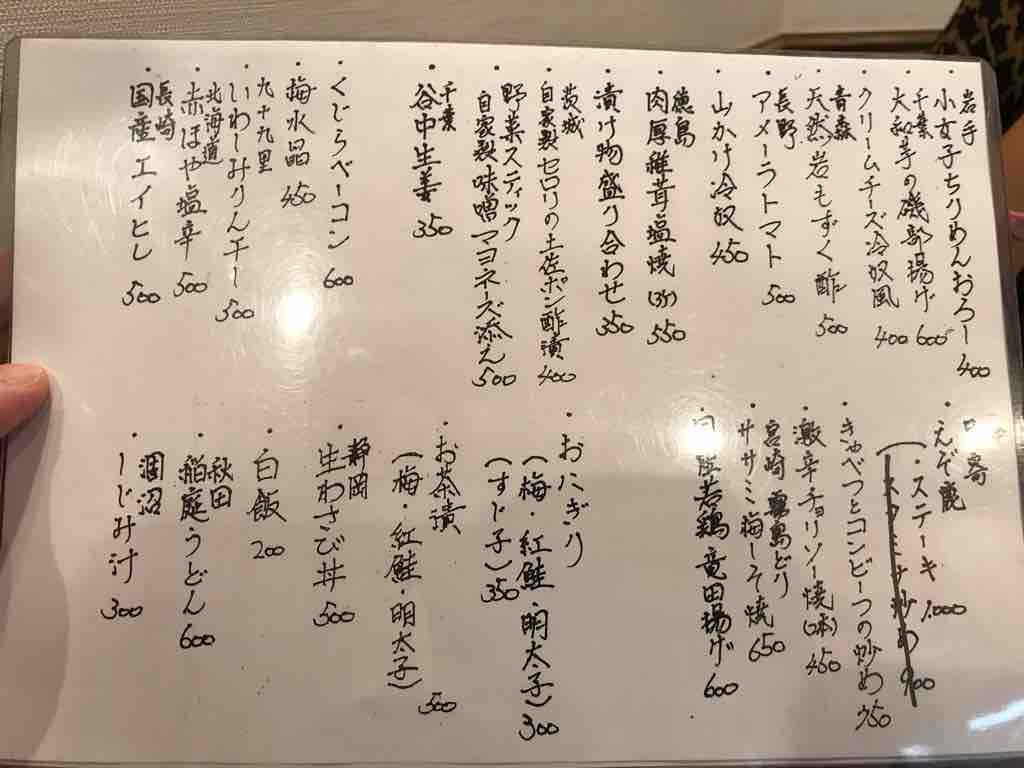 岩手
・小女子ちりめんおろし 400
千葉
・大和芋の磯部揚げ 600
・クリームチーズ冷奴風 400
青森
・天然岩もずく酢 500
長野
・アメーラトマト 500
・山かけ冷奴 450
徳島
・肉厚椎茸塩焼(3ケ) 550
・漬け物盛り合わせ 350
茨城
・自家製セロリの土佐ポン酢漬 400
・野菜スティック
自家製味噌マヨネーズ添え 500
千葉
・谷中生姜 350
・くじらベーコン 600
・梅水晶 450
九十九里
・いわしみりん干し 500
北海道
・赤ほや塩辛 500
長崎
・国産エイヒレ 500
・えぞ鹿
(・ステーキ 1000
900
・きゃべつとコンビーフの炒め 350
・激辛チョリソー焼(2本) 450
宮崎 霧島どり
・ササミ梅しそ焼 650
若鶏竜田揚げ 600
・おにぎり
(梅・紅鮭・明太子) 300
(すじ子) 350
・お茶漬
(梅・紅鮭・明太子) 500
静岡
・生わさび丼 500
・白飯 200
秋田
・稲庭うどん 600
涸沼
・しじみ汁 300